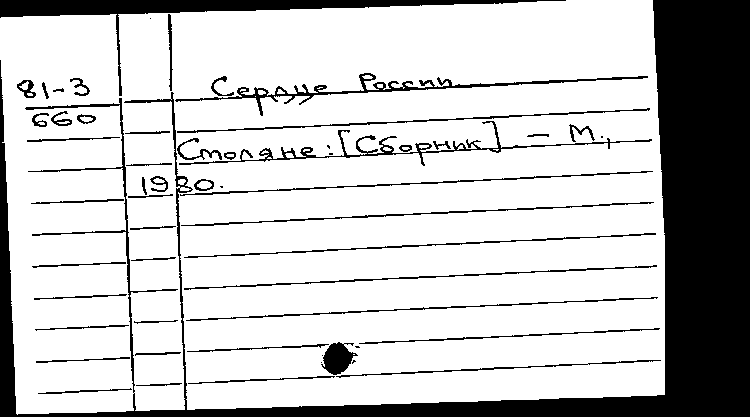 81-3
660
Сердце России
Смоляне: [Сборник] – М.,
1980.